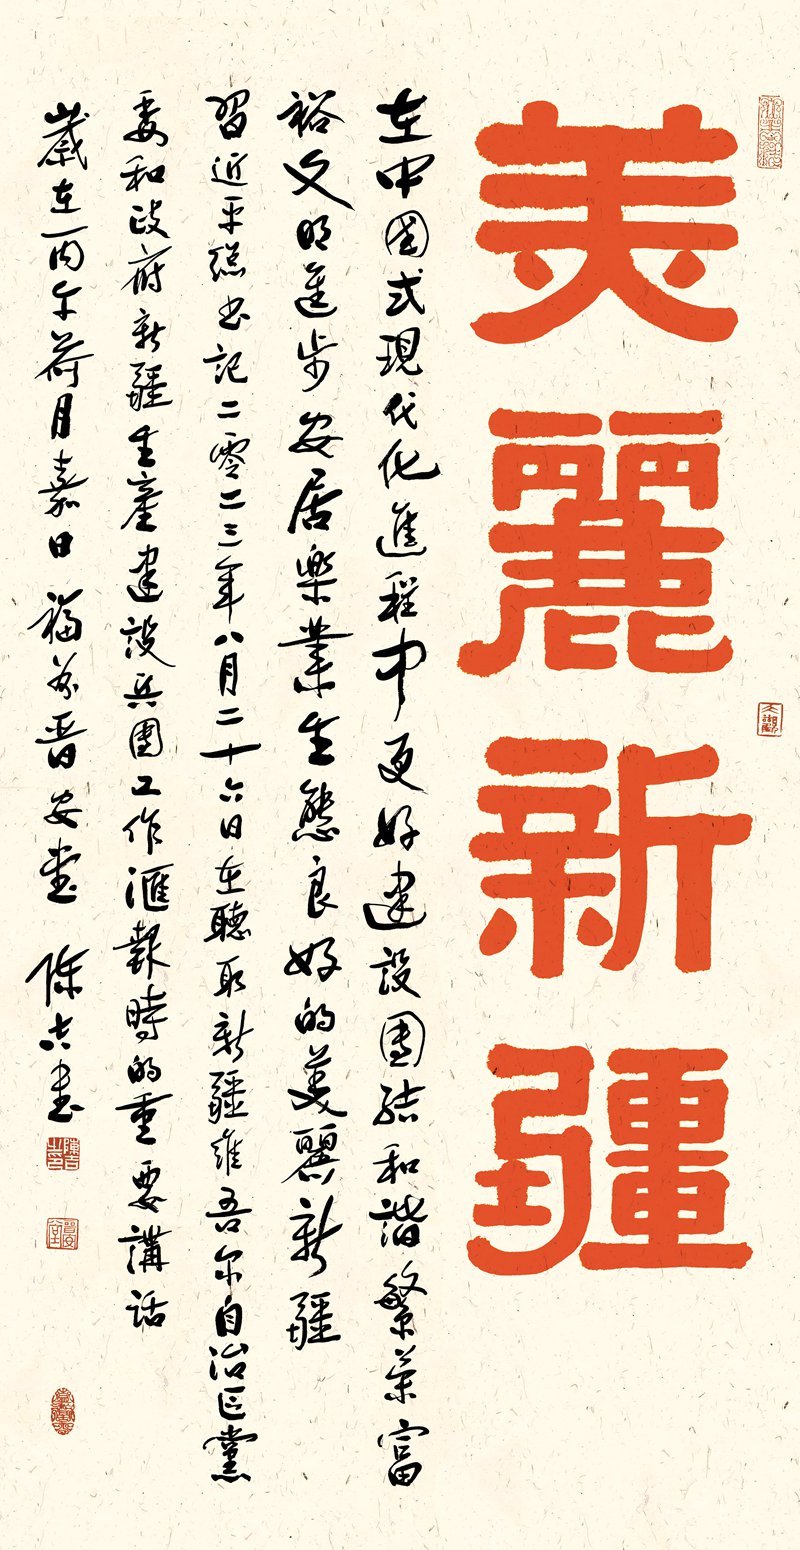 美麗新疆
在中國式現代化進程中更好建設團結和諧繁榮富
裕文明進步安居樂業生態良好的美麗新疆
習近平總书記二零二三年八月二十六日在聽取新疆維吾尔自治区黨
委和政府新疆生產建設兵團工作滙報時的重要講話
歲在丙午荷月嘉日福於晋安堂 陳吉書